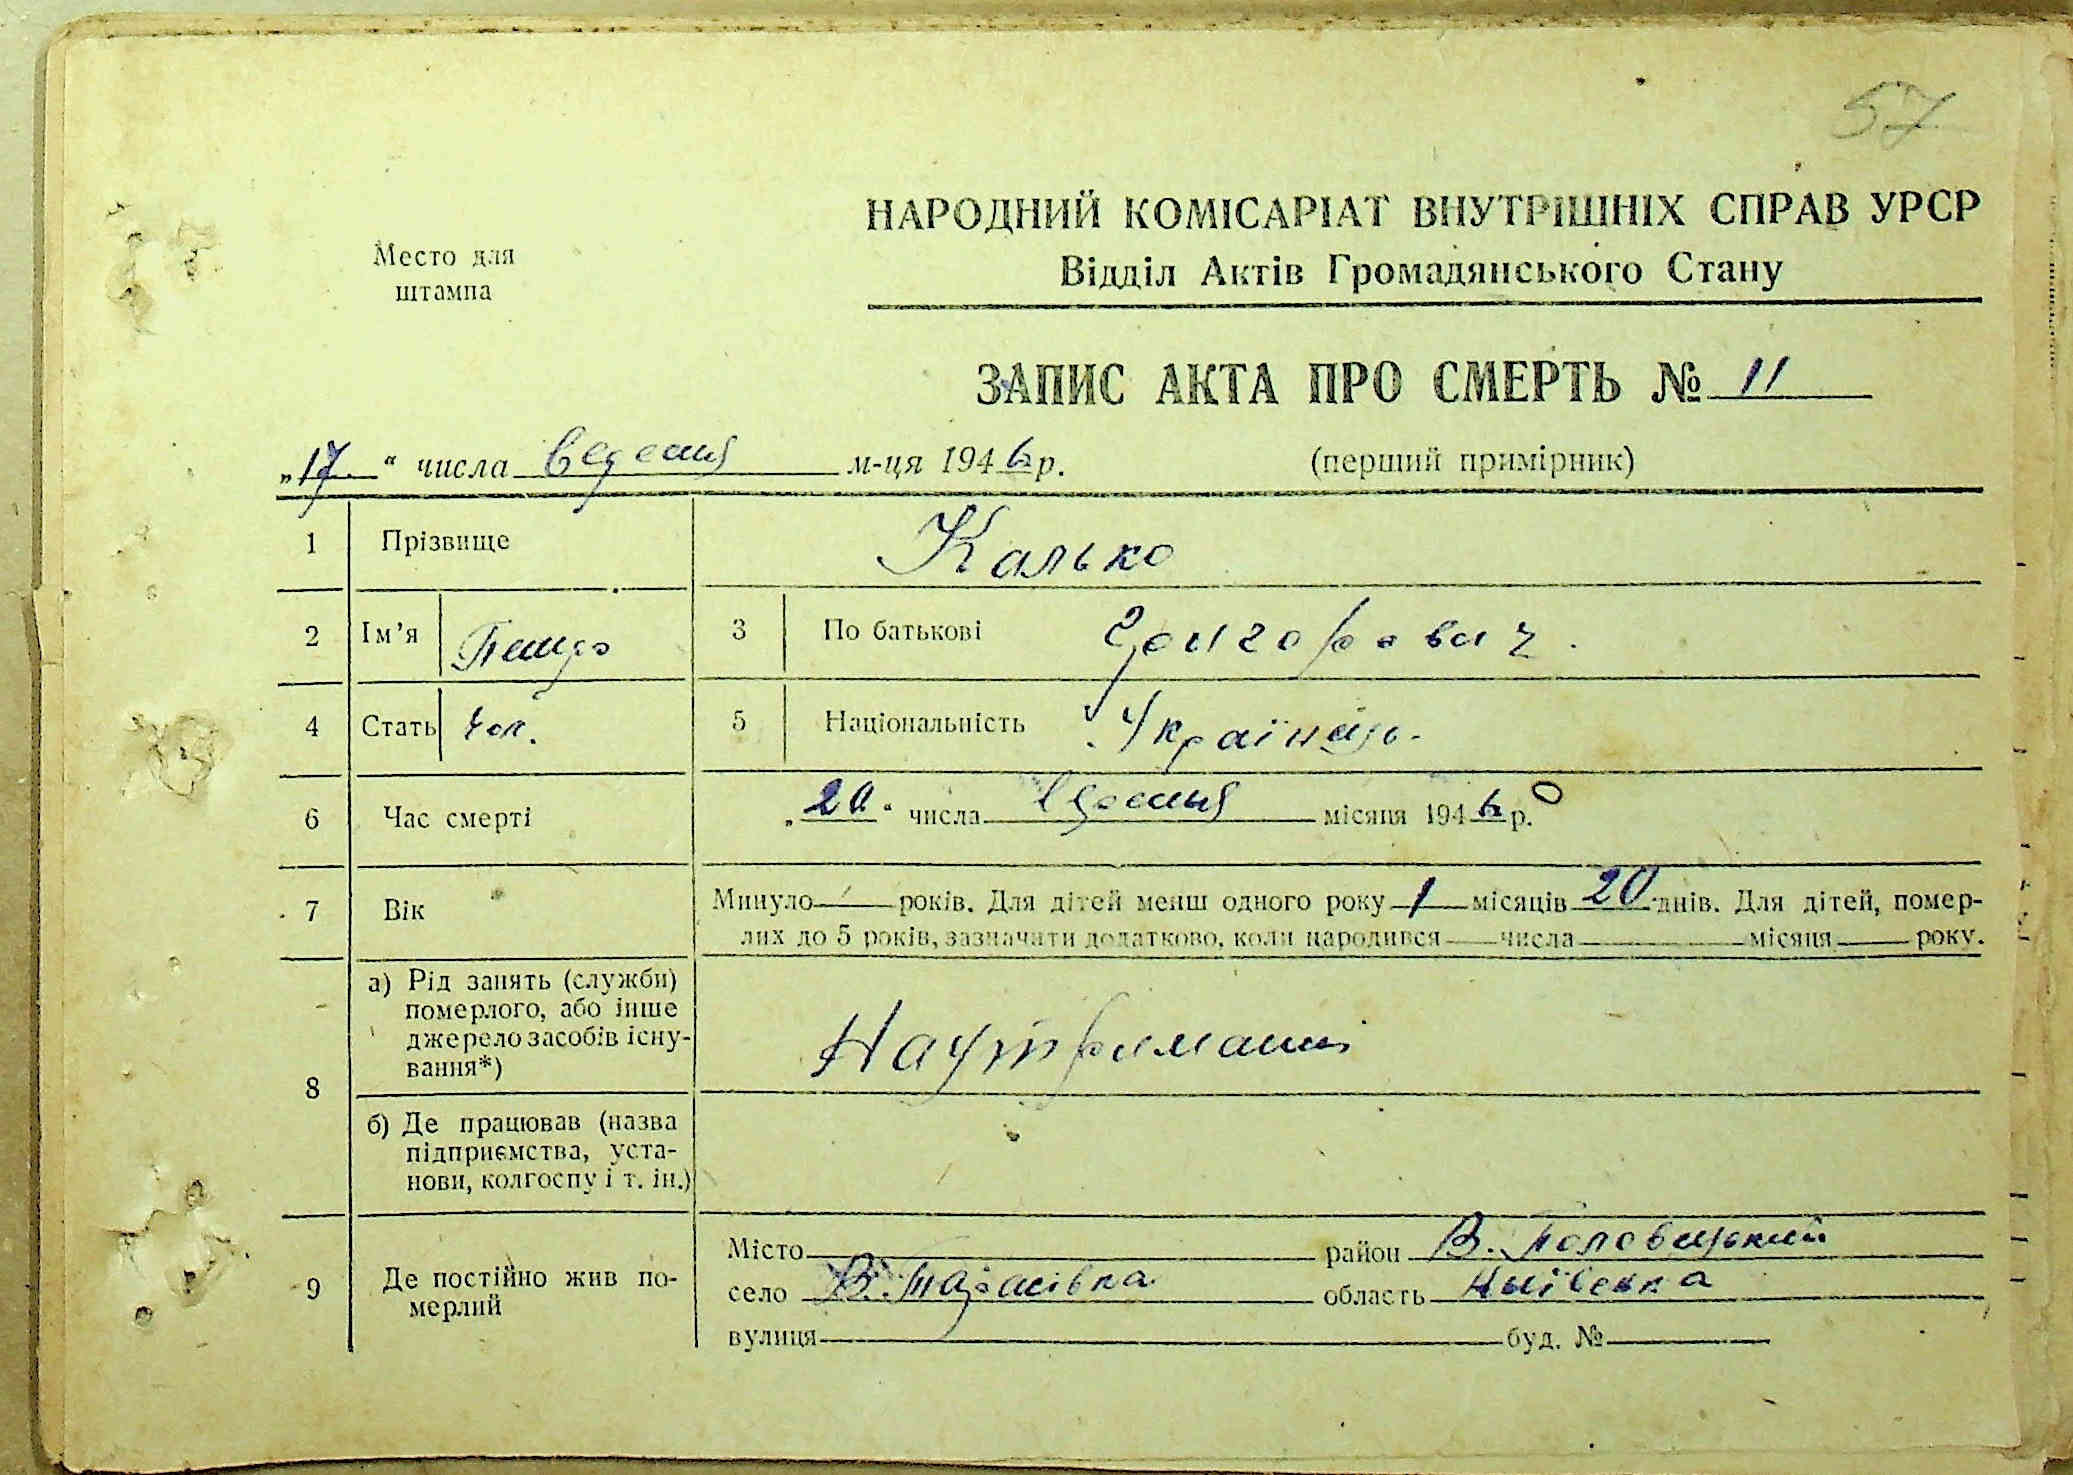 57
Место для
штампа
НАРОДНИЙ КОМІСАРІАТ ВНУТРІШНІХ СПРАВ УРСР
Відділ Актів Громадянського Стану
ЗАПИС АКТА ПРО СМЕРТЬ № 11
„17“ числа м-ця 1946 р. (перший примірник)
1 Прізвище Калько
2 Ім’я Петро 3 По батькові Григорович.
4 Стать Чол. 5 Національність Українець.
6 Час смерті „20“ числа місяця 1946 р.
7 Вік Минуло — років. Для дітей менш одного року 1 місяців 20 днів. Для дітей, помер-
лих до 5 років, зазначити додатково, коли народився числа місяця року.
8 а) Рід занять (служби)
померлого, або інше
джерело засобів існу-
вання*)
На утриманні
б) Де працював (назва
підприємства, уста-
нови, колгоспу і т. ін.)
9 Де постійно жив по-
мерлий
Місто район В. Половецький
село В. Тарасівка область Київська
вулиця буд. №